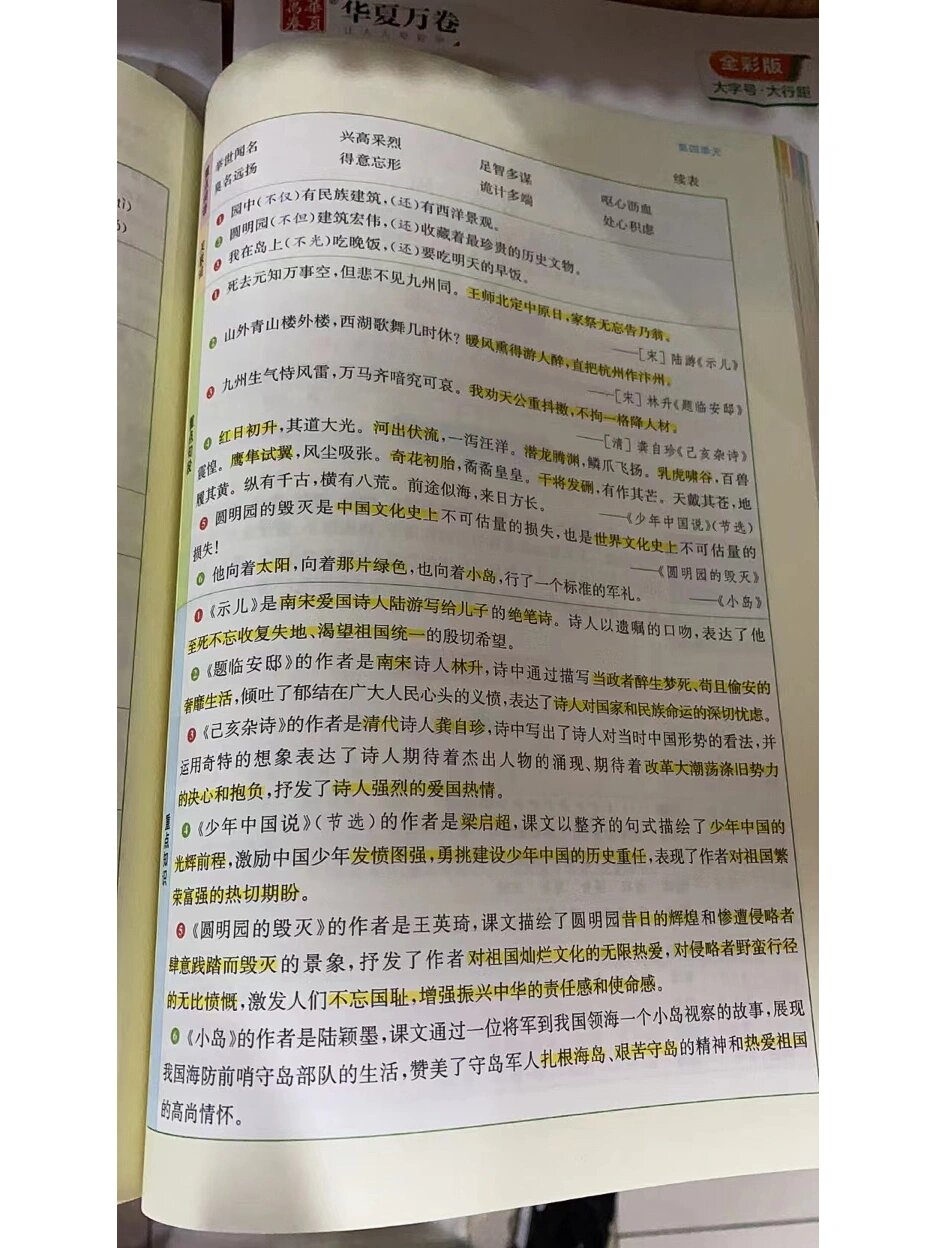 华夏万卷
全彩版
大字号·大行距
第四单元
续表
举世闻名 兴高采烈 足智多谋 呕心沥血
臭名远扬 得意忘形 诡计多端 处心积虑
❶ 园中(不仅)有民族建筑,(还)有西洋景观。
❷ 圆明园(不但)建筑宏伟,(还)收藏着最珍贵的历史文物。
❸ 我在岛上(不光)吃晚饭,(还)要吃明天的早饭。
❶ 死去元知万事空,但悲不见九州同。王师北定中原日,家祭无忘告乃翁。
——[宋]陆游《示儿》
❷ 山外青山楼外楼,西湖歌舞几时休?暖风熏得游人醉,直把杭州作汴州。
——[宋]林升《题临安邸》
❸ 九州生气恃风雷,万马齐喑究可哀。我劝天公重抖擞,不拘一格降人材。
——[清]龚自珍《己亥杂诗》
❹ 红日初升,其道大光。河出伏流,一泻汪洋。潜龙腾渊,鳞爪飞扬。乳虎啸谷,百兽
震惶。鹰隼试翼,风尘吸张。奇花初胎,矞矞皇皇。干将发硎,有作其芒。天戴其苍,地
履其黄。纵有千古,横有八荒。前途似海,来日方长。
——《少年中国说》(节选)
❺ 圆明园的毁灭是中国文化史上不可估量的损失,也是世界文化史上不可估量的
损失!
——《圆明园的毁灭》
❻ 他向着太阳,向着那片绿色,也向着小岛,行了一个标准的军礼。
——《小岛》
重点知识
❶《示儿》是南宋爱国诗人陆游写给儿子的绝笔诗。诗人以遗嘱的口吻,表达了他
至死不忘收复失地、渴望祖国统一的殷切希望。
❷《题临安邸》的作者是南宋诗人林升,诗中通过描写当政者醉生梦死、苟且偷安的
奢靡生活,倾吐了郁结在广大人民心头的义愤,表达了诗人对国家和民族命运的深切忧虑。
❸《己亥杂诗》的作者是清代诗人龚自珍,诗中写出了诗人对当时中国形势的看法,并
运用奇特的想象表达了诗人期待着杰出人物的涌现、期待着改革大潮荡涤旧势力
的决心和抱负,抒发了诗人强烈的爱国热情。
❹《少年中国说》(节选)的作者是梁启超,课文以整齐的句式描绘了少年中国的
光辉前程,激励中国少年发愤图强,勇挑建设少年中国的历史重任,表现了作者对祖国繁
荣富强的热切期盼。
❺《圆明园的毁灭》的作者是王英琦,课文描绘了圆明园昔日的辉煌和惨遭侵略者
肆意践踏而毁灭的景象,抒发了作者对祖国灿烂文化的无限热爱,对侵略者野蛮行径
的无比愤慨,激发人们不忘国耻,增强振兴中华的责任感和使命感。
❻《小岛》的作者是陆颖墨,课文通过一位将军到我国领海一个小岛视察的故事,展现
我国海防前哨守岛部队的生活,赞美了守岛军人扎根海岛、艰苦守岛的精神和热爱祖国
的高尚情怀。